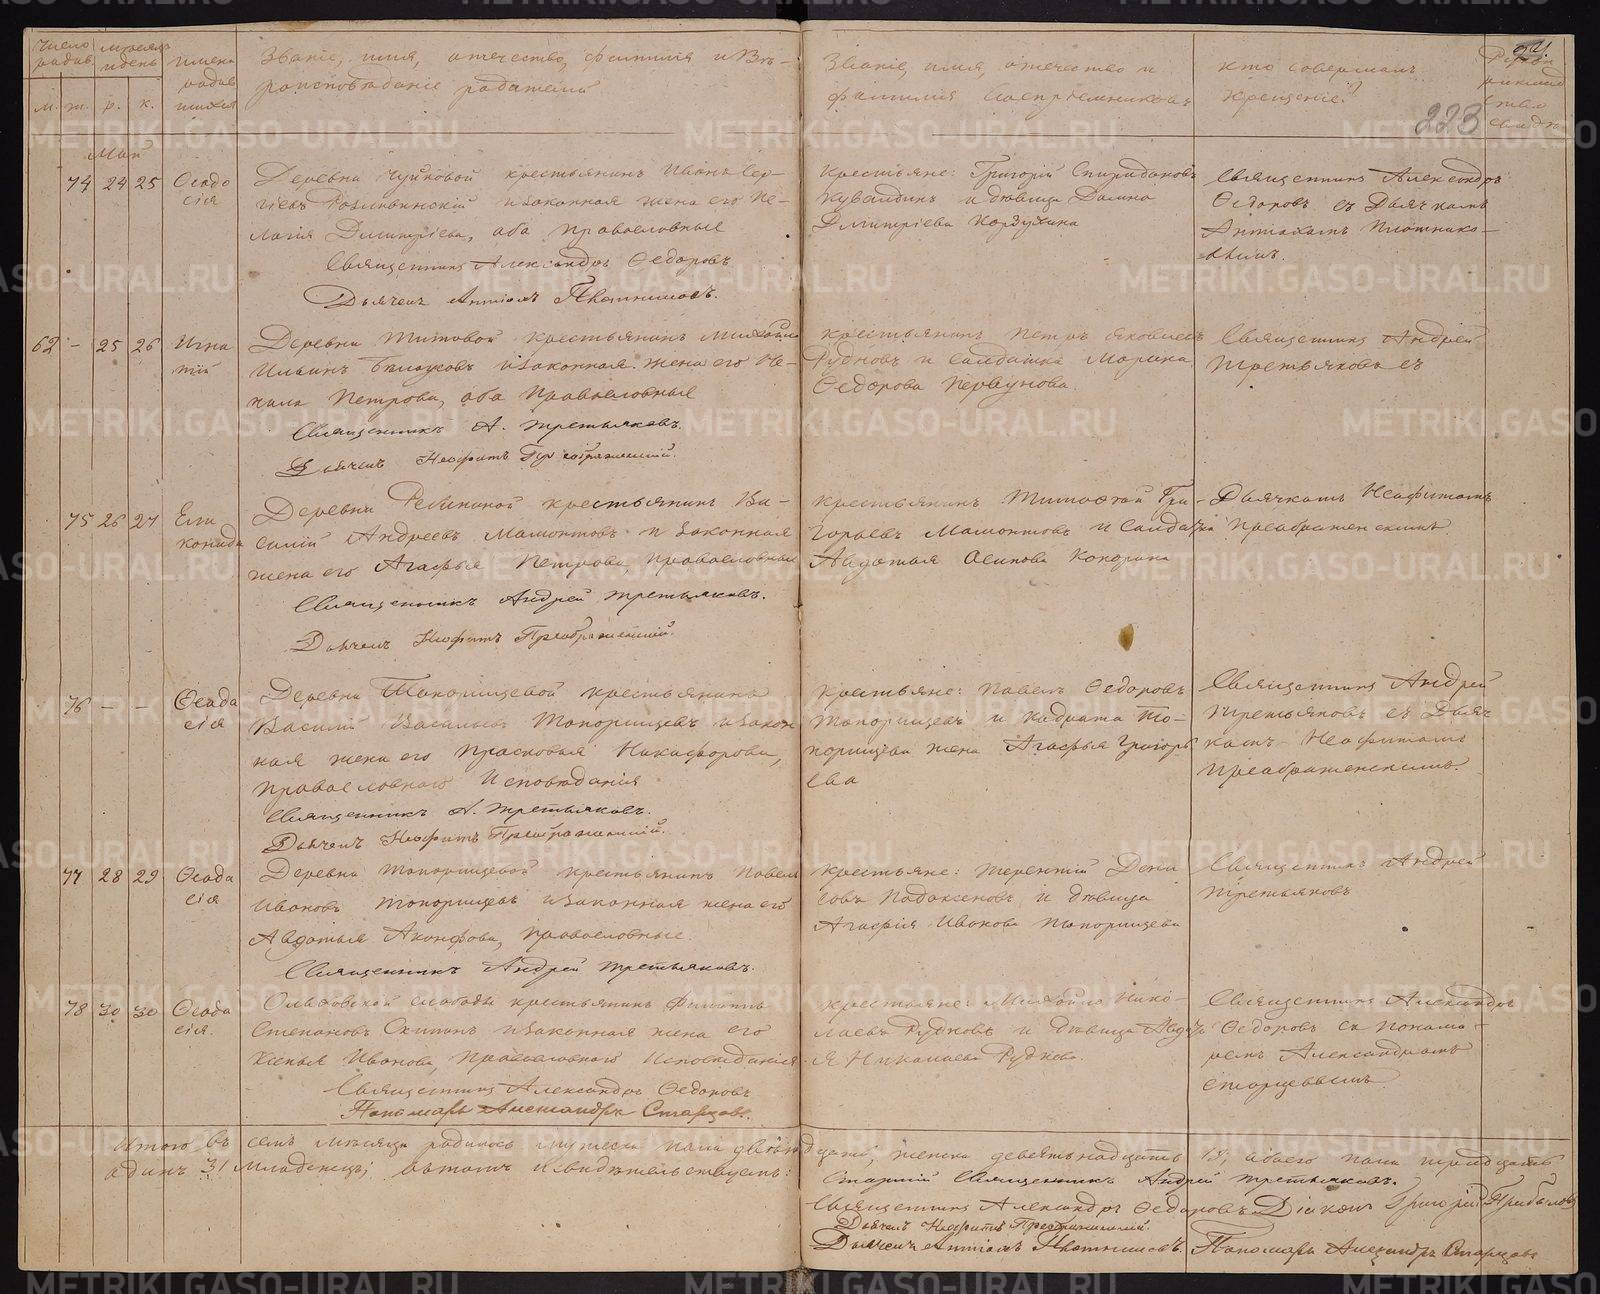 Число родив.
м. ж.
Месяцъ и день
р. к.
имена родив шихся
Званіе, имя, отчество, фамилія и Вѣ-
роисповѣданіе родителей
Званіе, имя, отчество и
фамилія Воспріемниковъ
кто совершалъ
крещеніе?
223
Май
74 24 25
Ѳеодо
сія
Деревни Чуйковой крестьянинъ Иванъ Сер-
гіевъ и законная жена его Пе-
лагія Димитріева, оба православные
Священникъ Александръ Ѳедоровъ
Дьячекъ
Крестьяне: Григорій Спиридоновъ
Кувалдинъ и дѣвица Домна
Димитріева
Священникъ Александръ
Ѳедоровъ съ Дьячкомъ
Плотнико-
вымъ.
62 - 25 26
Игна
тій
Деревни Титовой крестьянинъ Михайло
Ильинъ Бѣлоусовъ и законная жена его Не-
нила Петрова, оба Православные
Священникъ А. Третьяковъ.
Дьячекъ Неофитъ Преображенскій.
крестьянинъ Петръ Яковлевъ
Рудновъ и солдатка Марина
Ѳедорова Первунова.
Священникъ Андрей
Третьяковъ съ
75 26 27
Ели
конида
Деревни Ребининой крестьянинъ Ва-
силій Андреевъ Мамонтовъ и законная
жена его Агафья Петрова, православные
Священникъ Андрей Третьяковъ.
Дьячекъ Неофитъ Преображенскій.
крестьянинъ Тимофей Гри-
горьевъ Мамонтовъ и Солдатка
Авдотья Осипова Кокорина
Дьячкомъ Неофитомъ
Преображенскимъ
76 - -
Ѳеодо
сія
Деревни Топорищевой крестьянинъ
Василій Васильевъ Топорищевъ и закон
ная жена его Прасковья Никифорова,
православнаго Исповѣданія
Священникъ А. Третьяковъ.
Дьячекъ Неофитъ Преображенскій.
крестьяне: Павелъ Ѳедоровъ
Топорищевъ и Кодрата То-
порищева жена Агафья Григорь
ева
Священникъ Андрей
Третьяковъ съ Дьяч
комъ Неофитомъ
Преображенскимъ.
77 28 29
Ѳеодо
сія
Деревни Топорищевой крестьянинъ Павелъ
Ивановъ Топорищевъ и законная жена его
Авдотья Православные.
Священникъ Андрей Третьяковъ.
крестьяне: Терентій Дени
совъ и дѣвица
Агафія Иванова Топорищева
Священникъ Андрей
Третьяковъ
78 30 30
Ѳеодо
сія.
Ольховской слободы крестьянинъ Филиппъ
Степановъ Скитинъ и законная жена его
Ксенья Иванова, Православнаго Исповѣданія
Священникъ Александръ Ѳедоровъ
Пономарь Александръ Старцевъ.
крестьяне: Михайло Нико-
лаевъ Рудновъ и дѣвица Авдоть
я Николаева Руднова
Священникъ Александръ
Ѳедоровъ съ понома-
ремъ Александромъ
Старцевымъ
Итого въ семъ мѣсяцѣ родилось мужеска пола двѣнадцать, женска девятнадцать 19, обоего пола тридцать
одинъ 31 младенецъ; въ томъ и свидѣтельствуемъ:
Старшій Священникъ Андрей Третьяковъ.
Священникъ Александръ Ѳедоровъ Діаконъ Григорій Прибылевъ
Дьячекъ Неофитъ Преображенскій
Дьячекъ Пономарь Александръ Старцевъ
METRIKI.GASO-URAL.RU